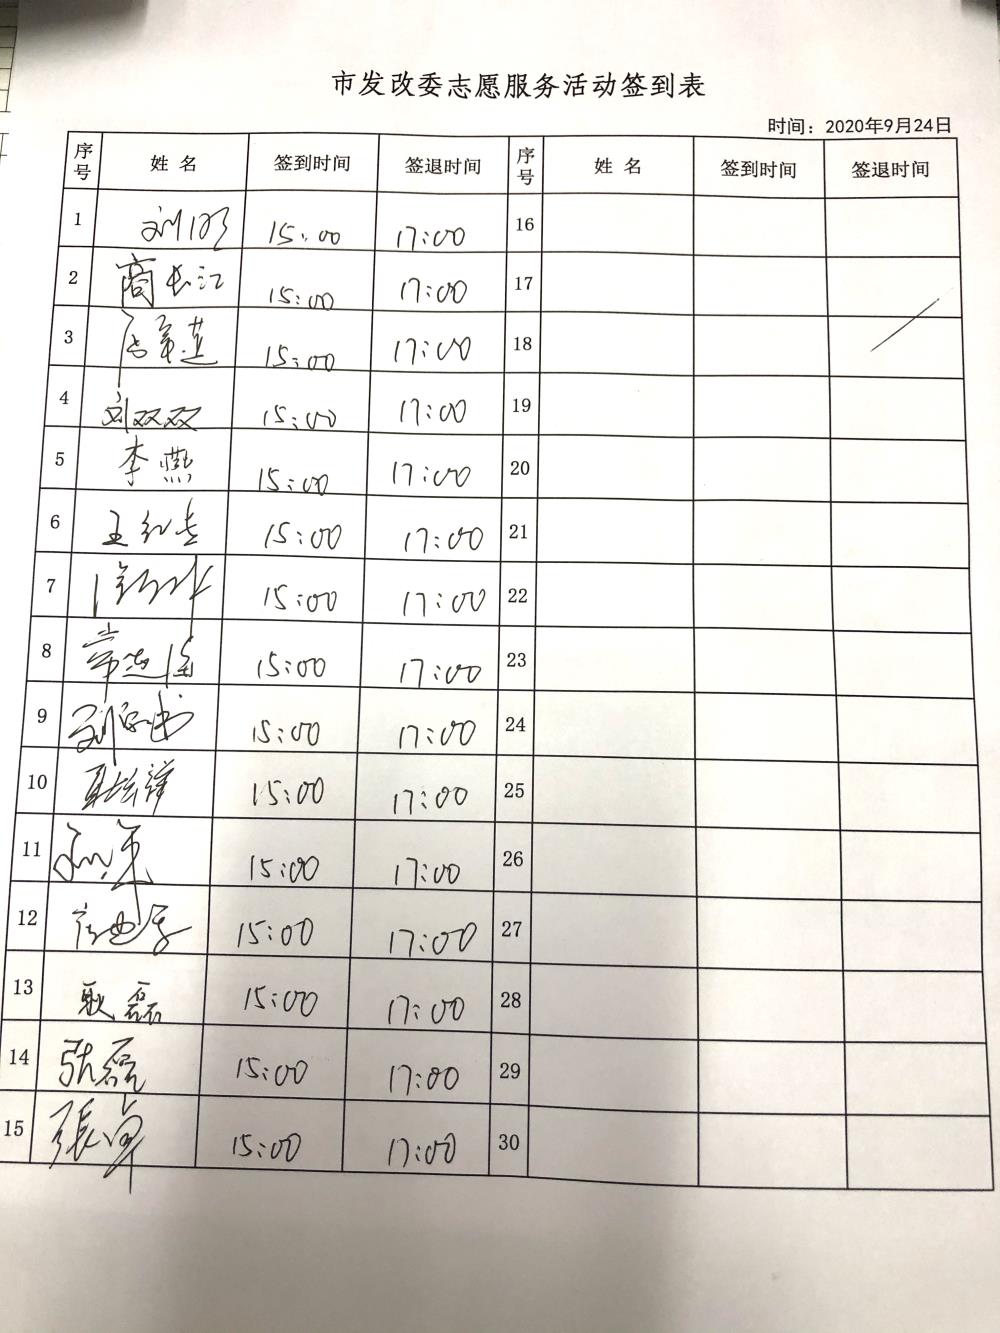 市发改委志愿服务活动签到表
时间：2020年9月24日
序号 姓名 签到时间 签退时间 序号 姓名 签到时间 签退时间
1 刘明 15:00 17:00 16
2 商长江 15:00 17:00 17
3 15:00 17:00 18
4 刘双双 15:00 17:00 19
5 李燕 15:00 17:00 20
6 王红 15:00 17:00 21
7 15:00 17:00 22
8 常 15:00 17:00 23
9 刘 15:00 17:00 24
10 15:00 17:00 25
11 15:00 17:00 26
12 15:00 17:00 27
13 耿磊 15:00 17:00 28
14 张磊 15:00 17:00 29
15 張 15:00 17:00 30